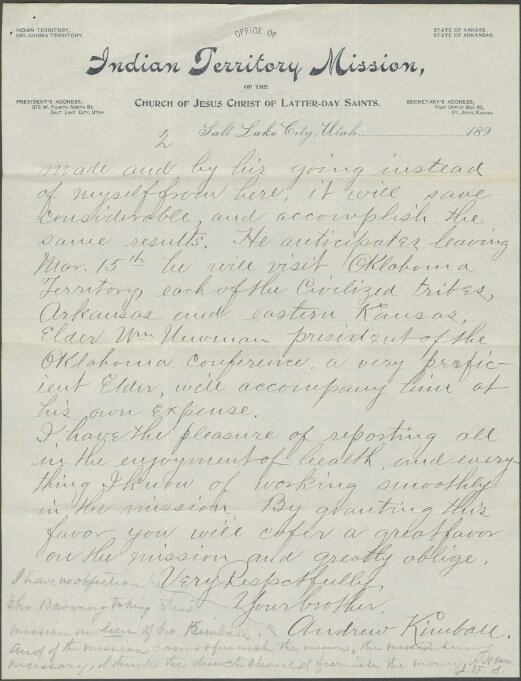 OFFICE OF
INDIAN TERRITORY.
OKLAHOMA TERRITORY.
STATE OF KANSAS.
STATE OF ARKANSAS.
Indian Territory Mission,
OF THE
CHURCH OF JESUS CHRIST OF LATTER-DAY SAINTS.
PRESIDENT'S ADDRESS,
376 W. FOURTH NORTH ST.
SALT LAKE CITY, UTAH
SECRETARY'S ADDRESS,
POST OFFICE BOX 93,
ST. JOHN, KANSAS
2
Salt Lake City, Utah, 189
made and by his going instead
of myself from here, it will save
considerable, and accomplish the
same results. He anticipates leaving
Mar. 15th he will visit Oklahoma
Territory, each of the Civilized tribes,
Arkansas and eastern Kansas,
Elder Wm Newman president of the
Oklahoma conference, a very profic-
ient Elder, will accompany him at
his own expense.
I have the pleasure of reporting all
in the enjoyment of health, and every
thing I know of working smoothly
in the mission. By granting this
favor you will cofer a great favor
on the mission and greatly oblige,
Very Respctfully,
Your brother,
Andrew Kimball.
I have no objection
to bro. Bowring taking this
mission in lieu of bro. Kimball,
and if the mission cannot furnish the means, the mission being
necessary, I think the church should furnish the money
J. F. S.